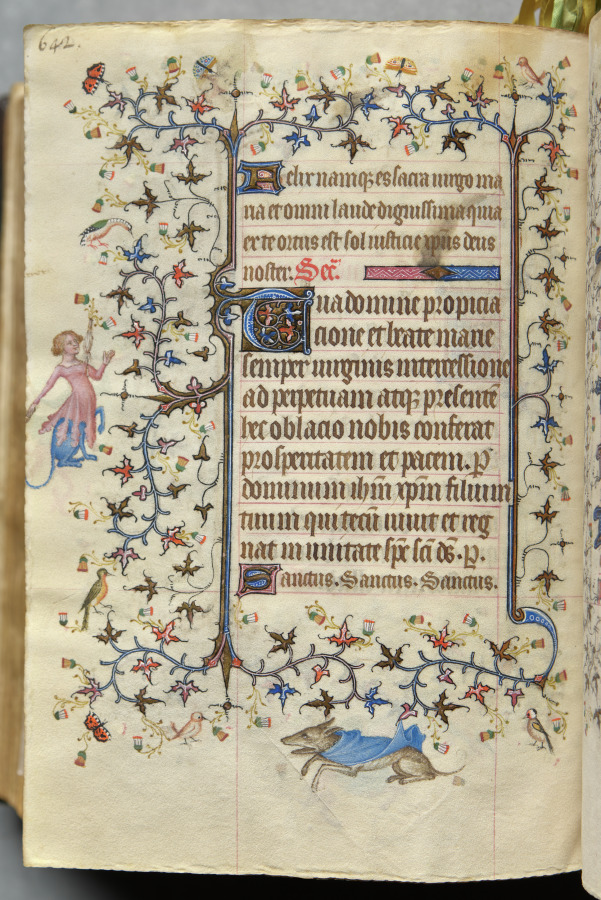 642.
Felix namq; es sacra uirgo ma
ria et omni laude dignissima quia
ex te ortus est sol iusticie xpus deus
noster. Sec̄.
Tua domine propicia
cione et beate marie
semper uirginis intercessione
ad perpetuam atq; presentē
hec oblacio nobis conferat
prosperitatem et pacem. P
dominum ihm̄ xp̄m filium
tuum qui tecū uiuit et reg
nat in unitate sp̄c sc̄i ds̄. P.
Sanctus. Sanctus. Sanctus.